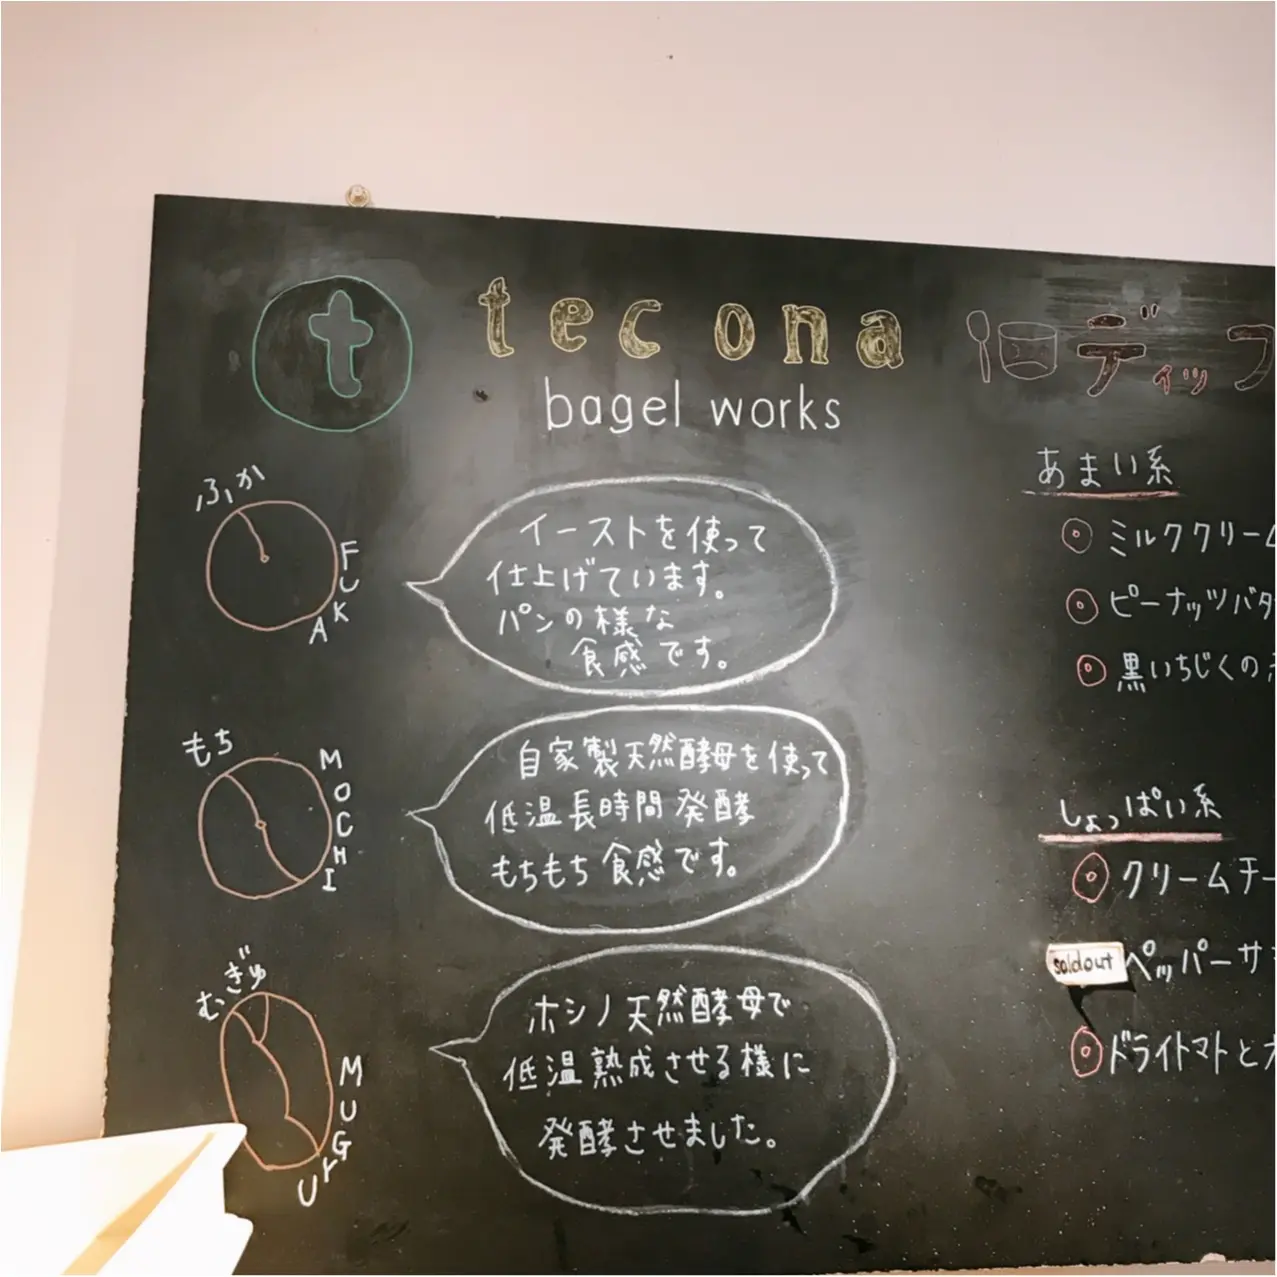 t
tecona
bagel works
ふか
FUKA
イーストを使って
仕上げています。
パンの様な
食感です。
もち
MOCHI
自家製天然酵母を使って
低温長時間発酵
もちもち食感です。
むぎゅ
MUGYU
ホシノ天然酵母で
低温熟成させる様に
発酵させました。
ディッフ
あまい系
ミルククリーム
ピーナッツバタ
黒いちじくの
しょっぱい系
クリームチー
soldout
ペッパーサ
ドライトマトと